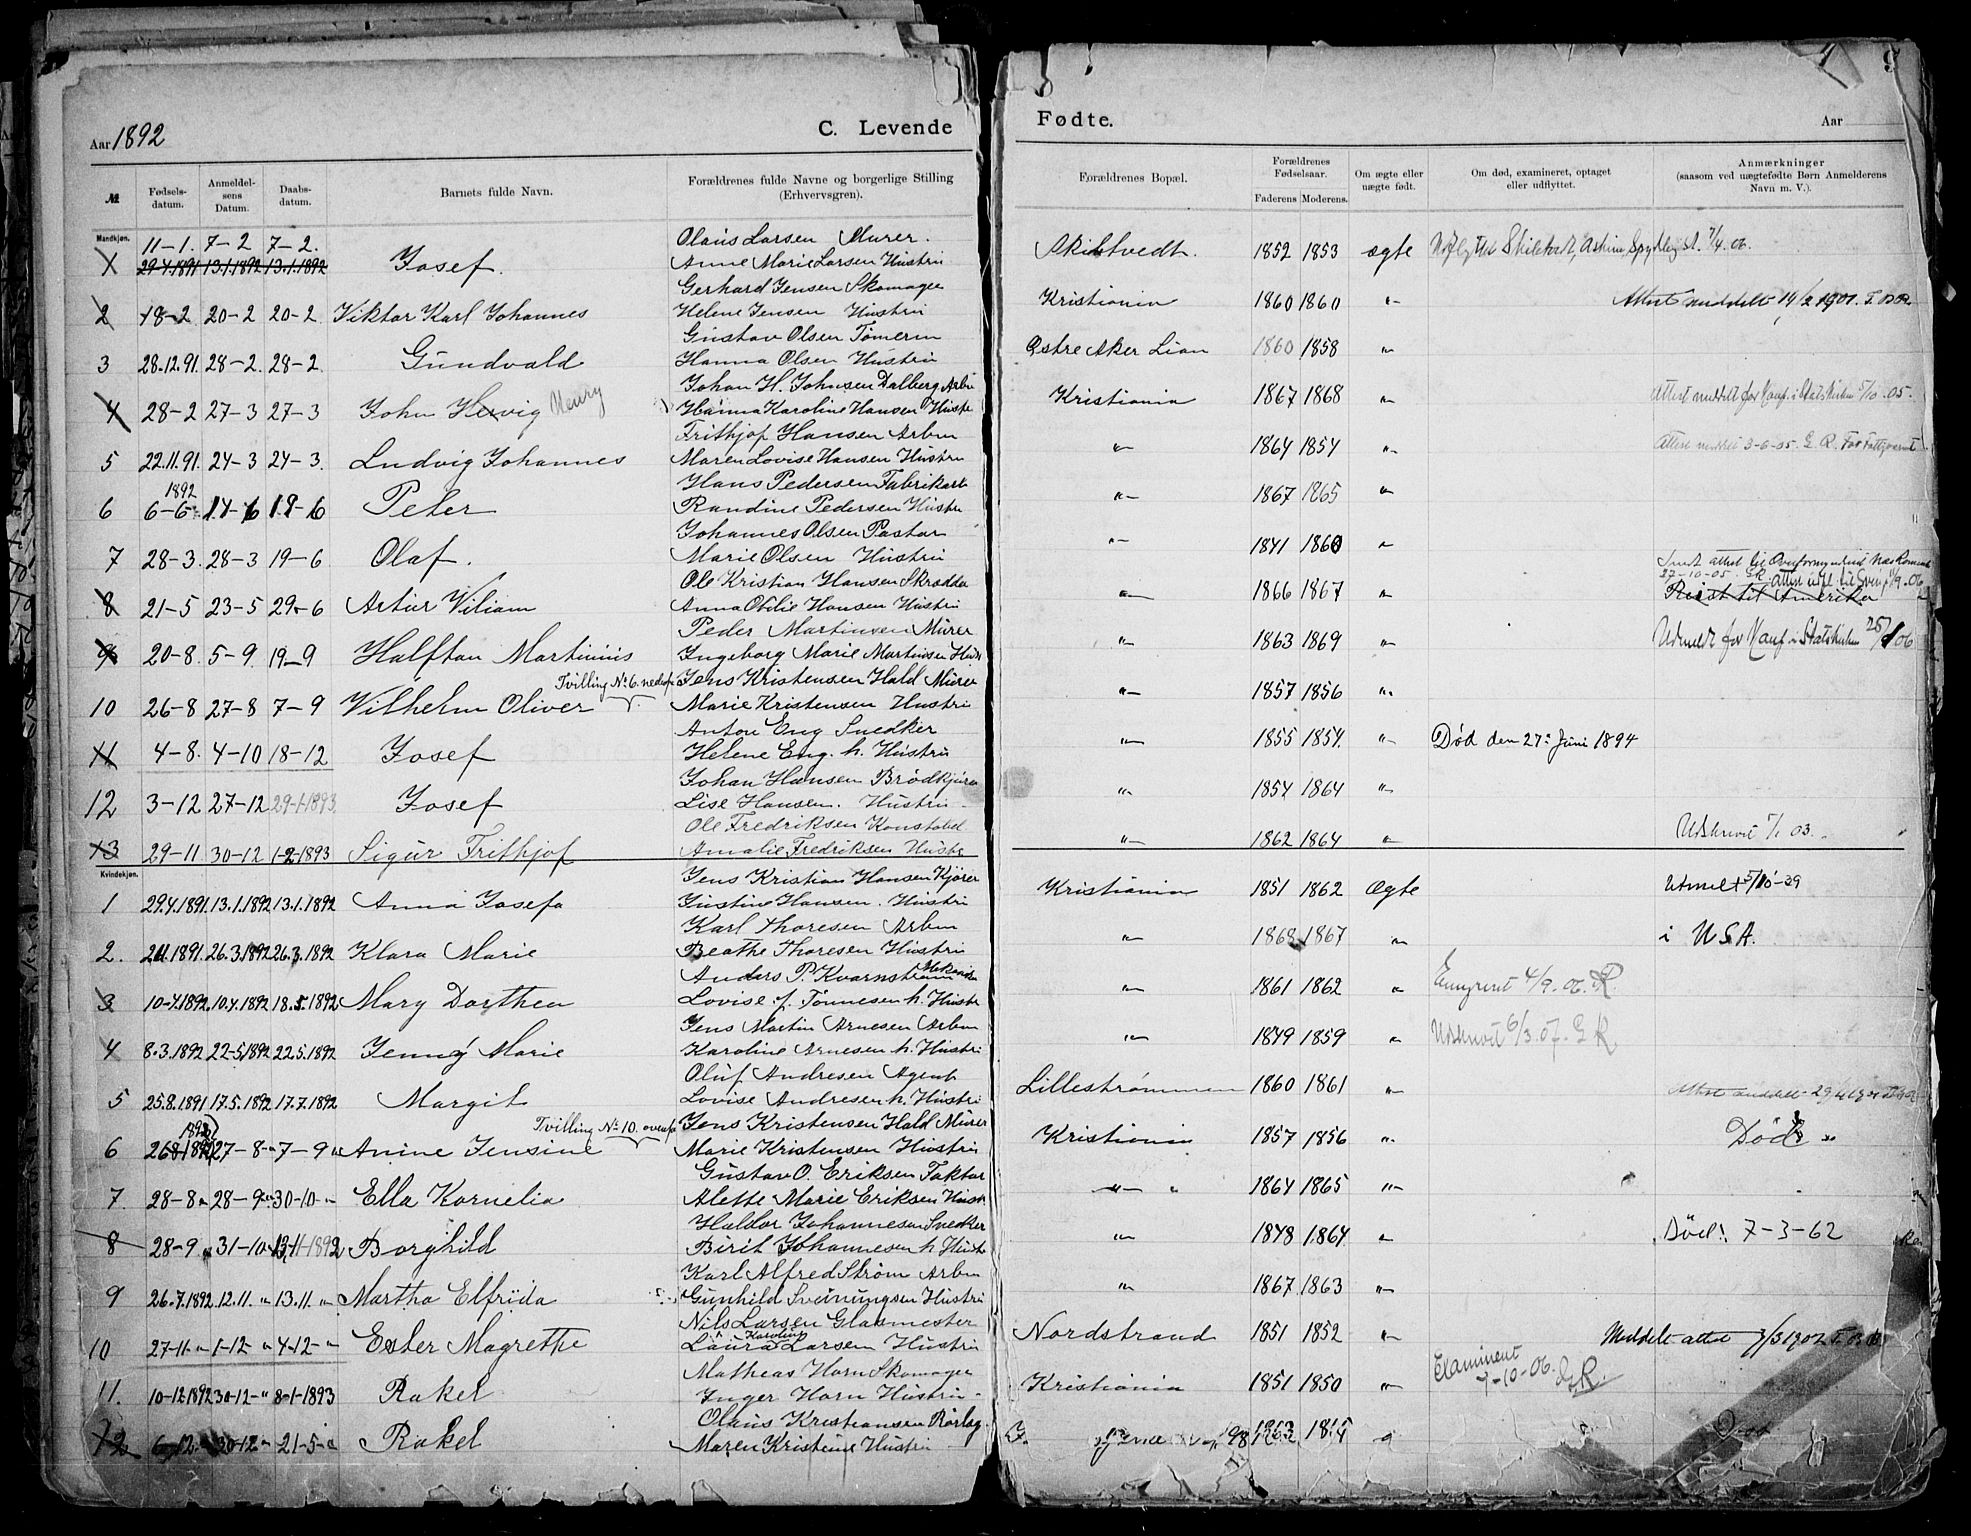 Aar 1892
C. Levende
Fødte.
Aar
№
Fødsels-datum.
Anmeldel-sens Datum.
Daabs-datum.
Barnets fulde Navn.
Forældrenes fulde Navne og borgerlige Stilling (Erhvervsgren).
Forældrenes Bopæl.
Forældrenes Fødselsaar.
Faderens Moderens.
Om ægte eller uægte født.
Om død, examineret, optaget eller udflyttet.
Anmærkninger (saasom ved uægtefødte Børn Anmelderens Navn m. V.).
Mandkjøn.
11-1. 7-2 7-2. Olaus Larsen Murer.
1 29.4.1891 13.1.1892 13.1.1892 Josef. Anne Marie Larsen Hustru Skibtvedt. 1852 1853 ægte 7/4.06.
Gerhard Jensen Skomager
2 18-2 20-2 20-2 Viktor Karl Johannes Helene Jensen Hustru Kristiania 1860 1860 „ Attest meddelt 19/2 1901.
Gustav Olsen Tømerm
3 28.12.91. 28-2. 28-2 Gundvald Hanna Olsen Hustru Østre Aker Lian 1860 1858 „
Johan H. Johnsen Dalberg Arbm
4 28-2 27-3 27-3 John Hervig Henry Hanna Karoline Hansen Hustr Kristiania 1867 1868 „ Attest meddelt for Konf. i Statskirken 5/10-05.
Frithjof Hansen Arbm
5 22.11.91. 24-3 24-3. Ludvig Johannes Maren Lovise Hansen Hustru „ 1864 1854 „ Attest meddelt 3-6-05. G. R.
Hans Pedersen Fabrikarb
1892
6 6-6 14-6 19-6 Peter Randine Pedersen Hustru „ 1867 1865 „
Johannes Olsen Pastor
7 28-3. 28-3 19-6 Olaf. Marie Olsen Hustru „ 1841 1860 „
27-10-05. GR.
Ole Kristian Hansen Skrædder
8 21-5 23-5 29-6 Artur Viliam Anna Otilie Hansen Hustru „ 1866 1867 „ Reist til Amerika
Peder Martinsen Murer
9 20-8. 5-9. 19-9 Halftan Martinius Ingeborg Marie Martinsen Hustr „ 1863 1869 „ Udmeldt for Konf. i Statskirken 06
Tvilling № 6. nedenfor Jens Kristensen Hald Murer
10 26-8 27-8 7-9 Vilhelm Oliver Marie Kristensen Hustru „ 1857 1856 „
Anton Eng Snedker
11 4-8. 4-10 18-12 Josef Helene Eng. h. Hustru „ 1855 1854. „ Død den 27: Juni 1894
Johan Hansen Brødkjører
12 3-12 27-12 29-1-1893 Josef Lise Hansen. Hustru „ 1854 1864 „
Ole Fredriksen Konstabel
13 29-11 30-12 1-2-1893 Sigur Frithjof Amalie Fredriksen Hustr „ 1862 1864 „ Udskrevet 7/1 03.
Kvindekjøn.
Jens Kristian Hansen Kjører
1 29.4.1891. 13.1.1892 13.1.1892 Anna Josefa Justine Hansen. Hustru Kristiania 1851 1862 Ægte Utmelt 5/10-39
Karl Thoresen Arbm
2. 1891. 26.3.1892 26.3.1892 Klara Marie Beathe Thoresen Hustru „ 1868 1867 „ i U.S.A.
Anders P. Kvarnstrøm Mekaniker
3 10-4.1892 10.4.1892 18.5.1892 Mary Dorthea Lovise f. Tønnesen h. Hustr „ 1861 1862 „ Emigreret 4/9.06. R.
Jens Martin Arnesen Arbm
4 8.3.1892 22-5.1892 22.5.1892 Jenny Marie Karoline Arnesen h. Hustru „ 1849 1859 „ Udskrevet 6/3.07. G R
Oluf Andresen Agent
5 25.8.1891 17.5.1892 17.7.1892 Margit Lovise Andresen h. Hustru Lillestrømmen 1860 1861 „ Attest meddelt
1892 Tvilling № 10. ovenfor Jens Kristensen Hald Murer
6 26 27-8 „ 7-9 „ Anine Jensine Marie Kristensen Hustru Kristiania 1857 1856 „ Død
Gustav O. Eriksen Faktor
7. 28-8 „ 28-9 „ 30-10 „ Ella Kornelia Alette Marie Eriksen Hustr „ 1864 1865 „
Haldor Johannesen Snedker
8 28-9 „ 31-10 13-11-1892 Borghild Birit Johannesen h. Hustr „ 1848 1864 „ Død! 7-3-62
Karl Alfred Strøm Arbm
9 26.7.1892 12.11. „ 13.11. „ Martha Elfrida Gunhild Sveinungsen Hustru „ 1867 1863 „
Nils Larsen Glasmester
10 27-11 „ 1-12 „ 4-12 „ Ester Magrethe Laura Karoline Larsen Hustru Nordstrand 1851 1852 „ Meddelt attest 1902
Mathias Horn Skomager
11. 10-12 1892 30-12 „ 8-1-1893 Rakel Inger Horn Hustru Kristiania 1851 1850 „ Examineret 7-10-06. G R.
Olaus Kristiansen Rørlæg.
12 6-12 „ 30-12 „ 21-5 „ Rakel Maren Kristine Hustru 98 1863